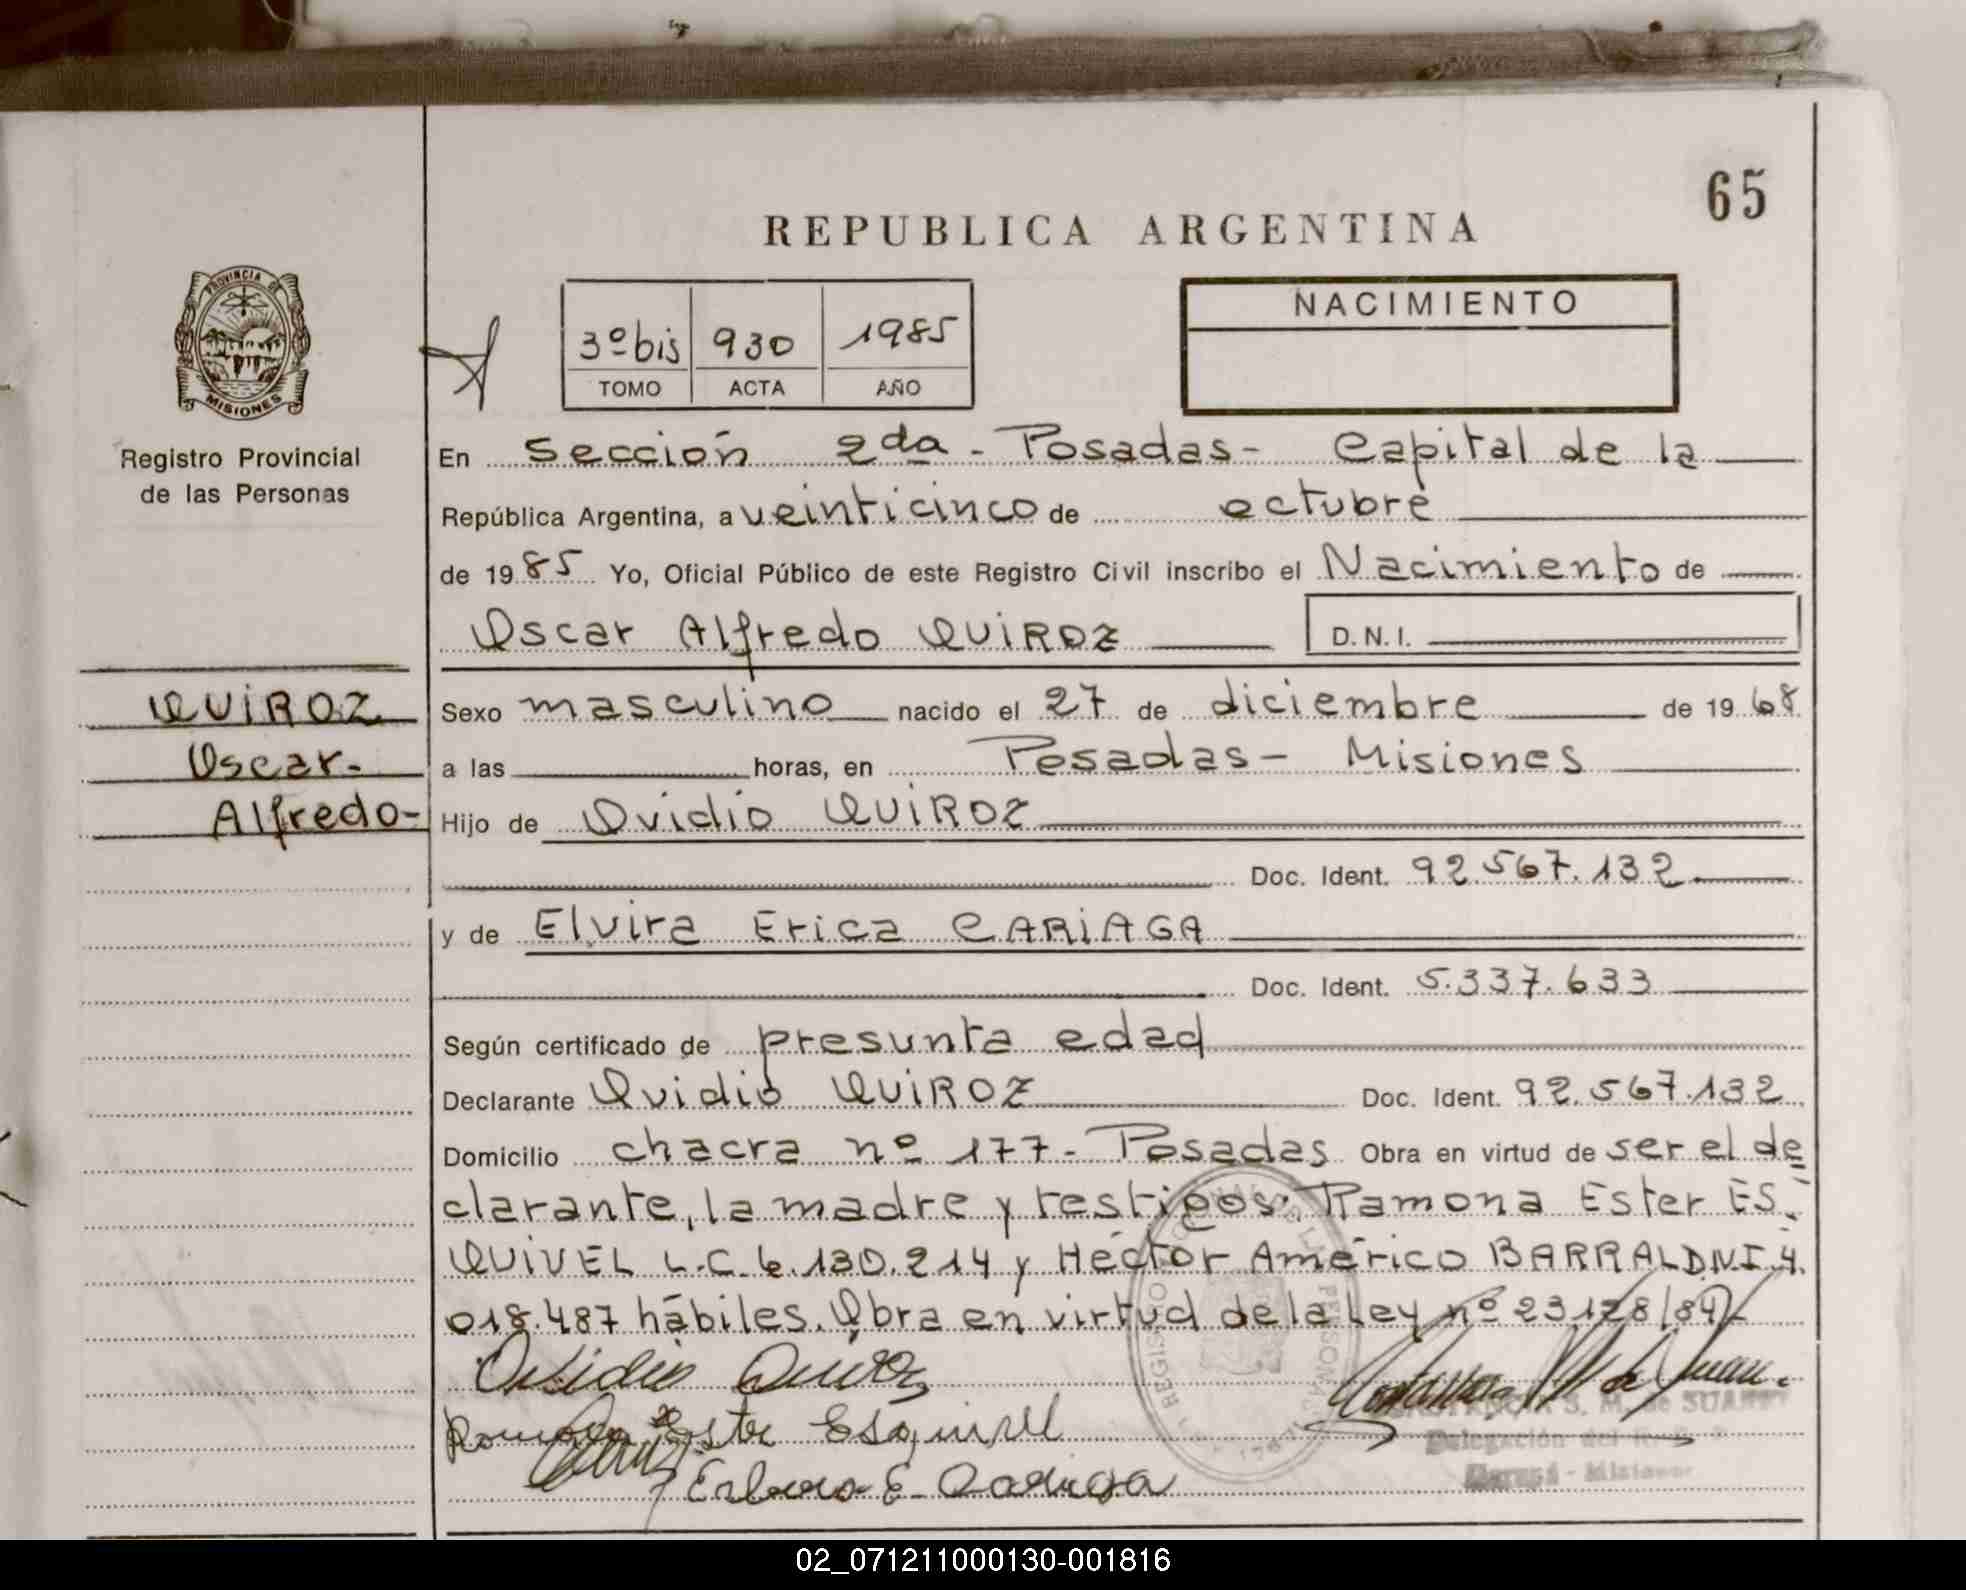 65
REPUBLICA ARGENTINA
PROVINCIA DE
MISIONES
3º bis 930 1985
TOMO ACTA AÑO
NACIMIENTO
Registro Provincial
de las Personas
En Sección 2da - Posadas - Capital de la
República Argentina, a veinticinco de octubre
de 1985 Yo, Oficial Público de este Registro Civil inscribo el Nacimiento de
Oscar Alfredo QUIROZ D.N.I.
QUIROZ
Oscar-
Alfredo-
Sexo masculino nacido el 27 de diciembre de 1968
a las horas, en Posadas - Misiones
Hijo de Ovidio QUIROZ
Doc. Ident. 92.567.132
y de Elvira Erica CARIAGA
Doc. Ident. 5.337.633
Según certificado de presunta edad
Declarante Ovidio QUIROZ Doc. Ident. 92.567.132
Domicilio chacra nº 177- Posadas Obra en virtud de ser el de
clarante, la madre y testigos: Ramona Ester ES-
QUIVEL L.C. 6.130.214 y Héctor Américo BARRAL DNI.4.
018.487 hábiles. Obra en virtud de la Ley nº 23.128/84
Ovidio Quiroz
Ramona Ester Esquivel
S. M. de SUAREZ
Delegación del R.
- Misiones
02_071211000130-001816